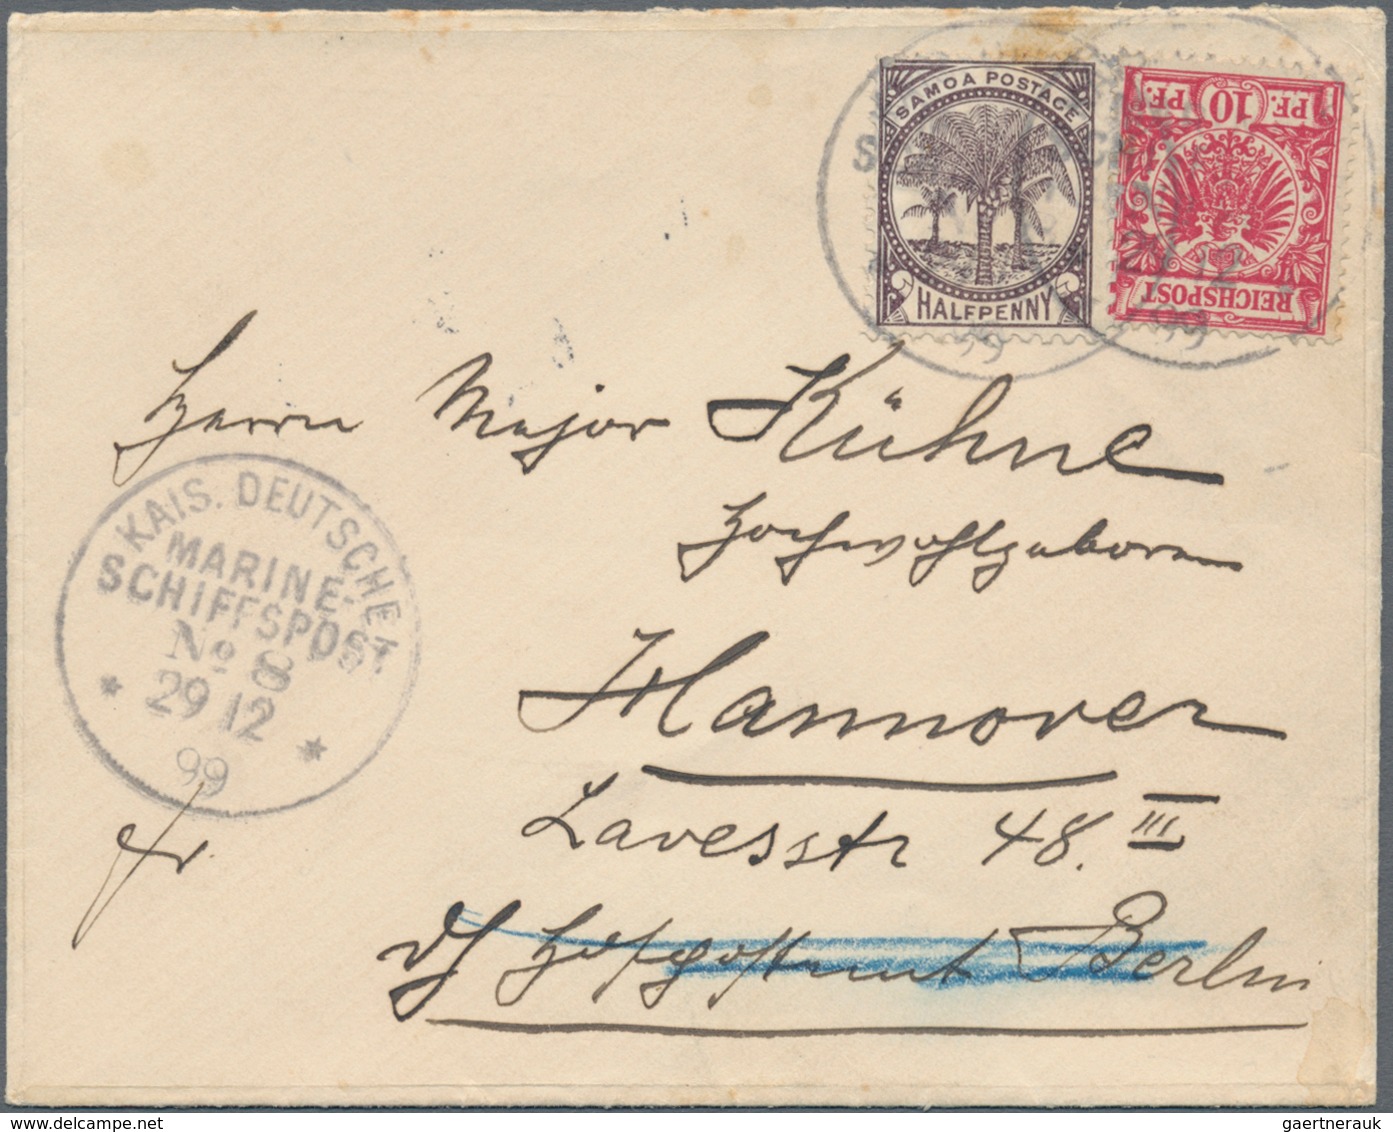 SAMOA POSTAGE
HALFPENNY
PF. 10 PF.
REICHSPOST
29 12
99
99
Herrn Major Kühne
Hochwohlgeboren
KAIS. DEUTSCHE
MARINE-
SCHIFFSPOST
No 8
29 12
99
fr.
Hannover
Lavesstr 48. III
Hofpostamt Berlin
gaertnerauk @ www.delcampe.net